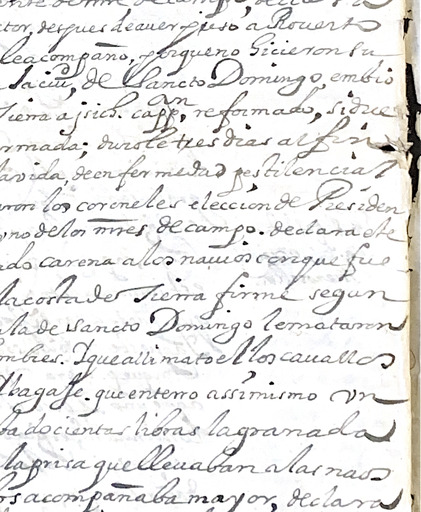 tor, despues de aver puesto a Rovert
le acompaño, porque no hicieron su
la ciud, de Sancto Domingo, embio
Tierra a, capp an, reformado, si dve
rmada; duro le tres dias al fin
la vida, de enfermedad pestilencial
ron los coroneles eleccion de Presiden
vno de los mres de campo. declara este
do carena a los navios con que fue
la costa de Tierra firme segun
la de Sancto Domingo le mataron
ombres. Y que alli mato el los cavallos
bagaje. que enterro assimismo un
ba docientas libras la granada
la prisa que llevaban a las naos
rs acompañaba mayor, declara